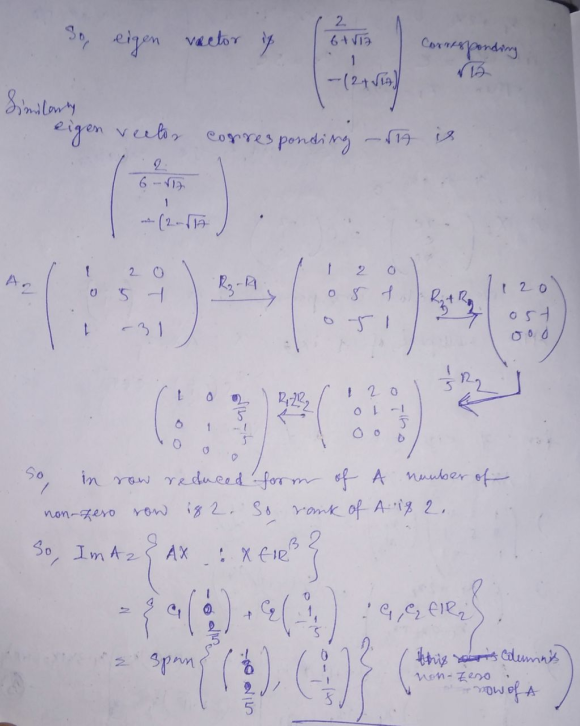 So, eigen vector is (2/(6+√17) 1 -(2+√17)) corresponding √17
Similarly
eigen vector corresponding -√17 is
(2/(6-√17) 1 -(2-√17)
A = (1 2 0 0 5 -1 1 -3 1) R3-R1 → (1 2 0 0 5 -1 0 -5 1) R3+R2 → (1 2 0 0 5 -1 0 0 0)
1/5 R2
(1 0 2/5 0 1 -1/5 0 0 0) R1-2R2 ← (1 2 0 0 1 -1/5 0 0 0)
So, in row reduced form of A number of
non-zero row is 2. So, rank of A is 2.
So, Im A = { AX : X ∈ IR^3 }
= { c1 (1 0 2/5) + c2 (0 1 -1/5) : c1, c2 ∈ IR2 }
= span { (1 0 2/5), (0 1 -1/5) } ( this column is
non-zero
row of A )